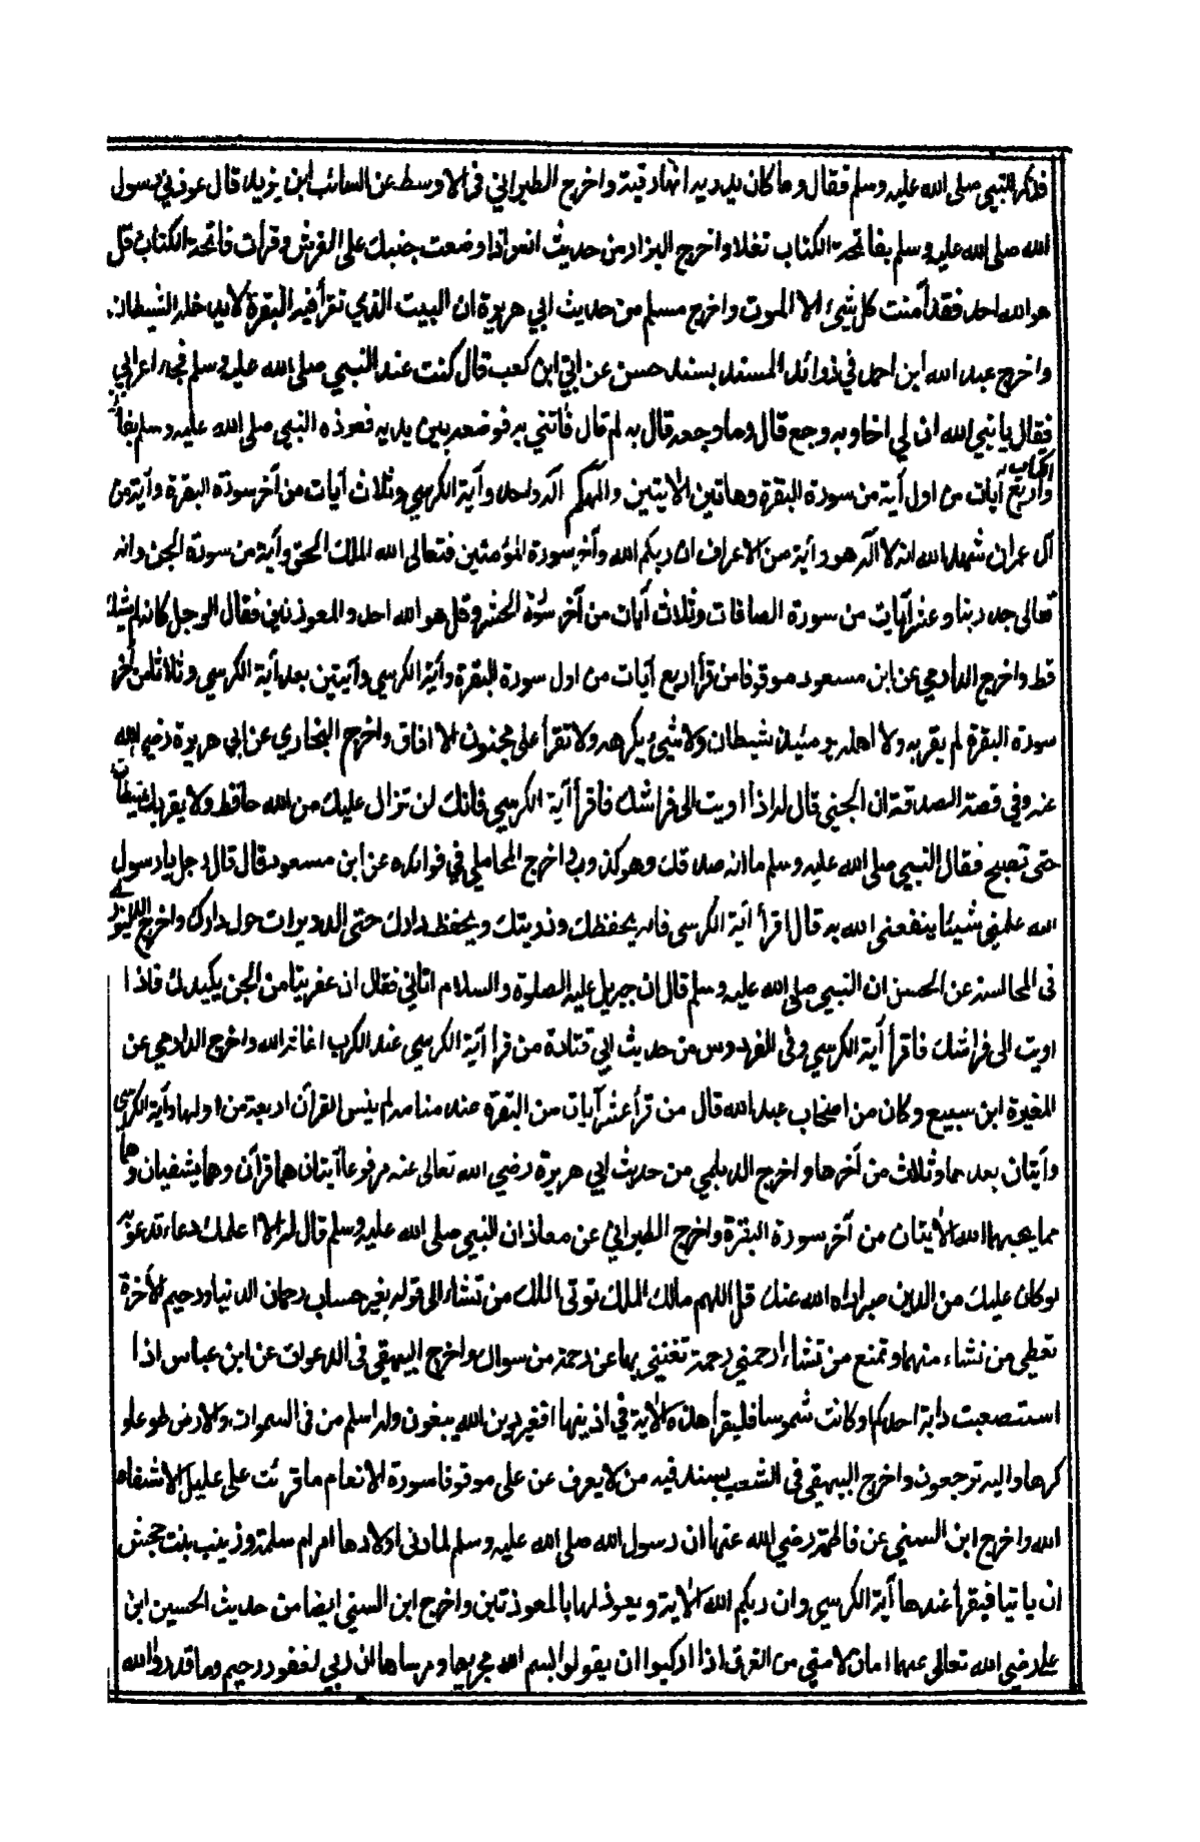 فذكر للنبي صلى الله عليه وسلم فقال وما كان يدريه انها رقية واخرج الطبراني في الاوسط عن السائب ابن يزيد قال عوذني رسول
الله صلى الله عليه وسلم بفاتحة الكتاب تفلا واخرج البزار من حديث انس اذا وضعت جنبك على الفرش وقرأت فاتحة الكتاب وقل
هو الله احد فقد أمنت كل شيئ الا الموت واخرج مسلم من حديث ابي هريرة ان البيت الذي تقرأ فيه البقرة لا يدخله الشيطان.
واخرج عبد الله ابن احمد في زوائد المسند بسند حسن عن ابي ابن كعب قال كنت عند النبي صلى الله عليه وسلم فجاء اعرابي
فقال يا نبي الله ان لي اخا وبه وجع قال وما وجعه قال به لمم قال فأتني به فوضعه بين يديه فعوذه النبي صلى الله عليه وسلم بفاتحة
الكتاب
واربع آيات من اول أية من سورة البقرة وهاتين الأيتين والهكم اله واحد وآية الكرسي وثلاث آيات من آخر سورة البقرة وآية من
آل عمران شهد الله انه لا اله هو وأية من الاعراف ان ربكم الله وآخر سورة المؤمنين فتعالى الله الملك الحق وأية من سورة الجن وانه
تعالى جد ربنا وعشر آيات من سورة الصافات وثلاث آيات من آخر سورة الحشر وقل هو الله احد والمعوذتين فقام الرجل كانه لم يشك
قط واخرج الدارمي عن ابن مسعود موقوفا من قرأ اربع آيات من اول سورة البقرة وآية الكرسي وآيتين بعد آية الكرسي وثلاثا من أخر
سورة البقرة لم يقربه ولا اهله يومئيذ شيطان ولا شيئ يكرهه ولا تقرأ على مجنون الا افاق واخرج البخاري عن ابي هريرة رضي الله
عنه وفي قصة الصدقة ان الجني قال له اذا اويت الى فراشك فاقرأ آية الكرسي فانك لن تزال عليك من الله حافظ ولا يقربك شيطان
حتى تصبح فقال النبي صلى الله عليه وسلم ما انه صدقك وهو كذوب اخرج المحاملي في فوائده عن ابن مسعود قال قال رجل يا رسول
الله علمني شيئا ينفعني الله به قال اقرأ آية الكرسي فانه يحفظك وذريتك ويحفظ دارك حتى الدويرات حول دارك واخرج الدينوري
في المجالسة عن الحسن ان النبي صلى الله عليه وسلم قال ان جبريل عليه الصلوة والسلام اتاني فقال ان عفريتا من الجن يكيدك فاذا
اويت الى فراشك فاقرأ آية الكرسي وفى الفردوس من حديث ابي قتادة من قرأ آية الكرسي عند الكرب اغاثه الله واخرج الدارمي عن
المغيرة ابن سبيع وكان من اصحاب عبد الله قال من قرأ عشر آيات من البقرة عند منامه لم ينس القرآن اربعة من اولها وآية الكرسي
وأيتان بعدها وثلاث من أخرها واخرج الديلمي من حديث ابي هريرة رضي الله تعالى عنه مرفوعا آيتان هما قرآن وهما يشفيان وهما
مما يحبهما الله الأيتان من آخر سورة البقرة واخرج الطبراني عن معاذ ان النبي صلى الله عليه وسلم قال له الا اعلمك دعاء تدعو به
لو كان عليك من الدين صبر اداه الله عنك قل اللهم مالك الملك توتى الملك من تشاء الى قوله بغير حساب رحمان الدنيا ورحيم الأخرة
تعطى من نشاء منهما وتمنع من تشاء ارحمني رحمة تغنيني بها عن رحمة من سواك واخرج البيهقي في الدعوات عن ابن عباس اذا
استصعبت دابة احدكم او كانت شموسا فليقرأ هذه الأية في اذنيها افغير دين الله يبغون وله اسلم من فى السموات والارض طوعا و
كرها واليه ترجعون واخرج البيهقي في الشعب بسند فيه من لا يعرف عن على موقوفا سورة الانعام ما قرئت على عليل الا شفاه
الله واخرج ابن السني عن فاطمة رضي الله عنها ان رسول الله صلى الله عليه وسلم لما دنى اولادها امر ام سلمة وزينب بنت جحش
ان ياتيا فيقرأ عندها آية الكرسي وان ربكم الله الأية ويعوذ لها بالمعوذتين واخرج ابن السني ايضا من حديث الحسين ابن
علي رضي الله تعالى عنهما امان لامتي من الغرق اذا اركبوا ان يقولوا بسم الله مجريها ومرساها ان ربي لغفور رحيم وما قدروا الله